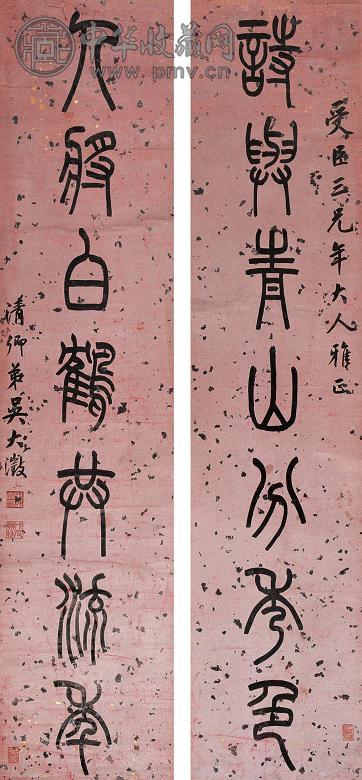 三兄年大人雅正
詩與青山分秀色
天將白鶴共流年
清卿弟吳大澂
中华收藏网
www.pmv.cn